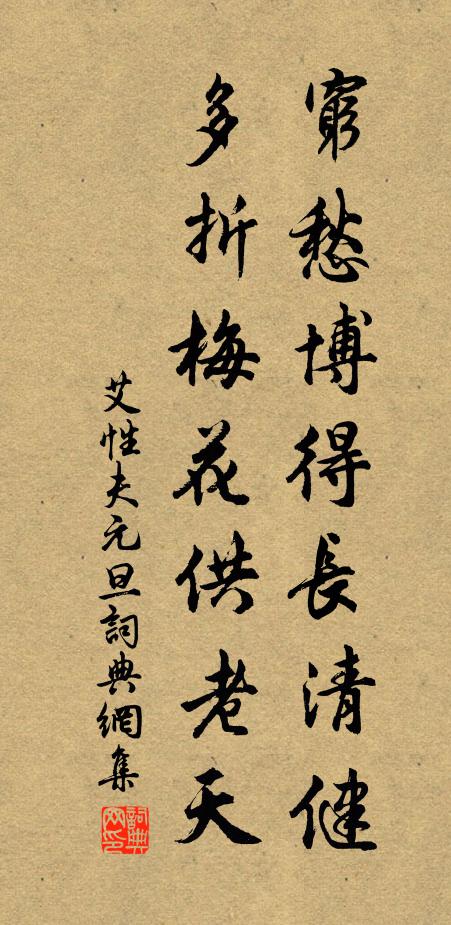 窮愁博得長清健
多折梅花供老天
艾性夫元旦詞典網集
詞典网印